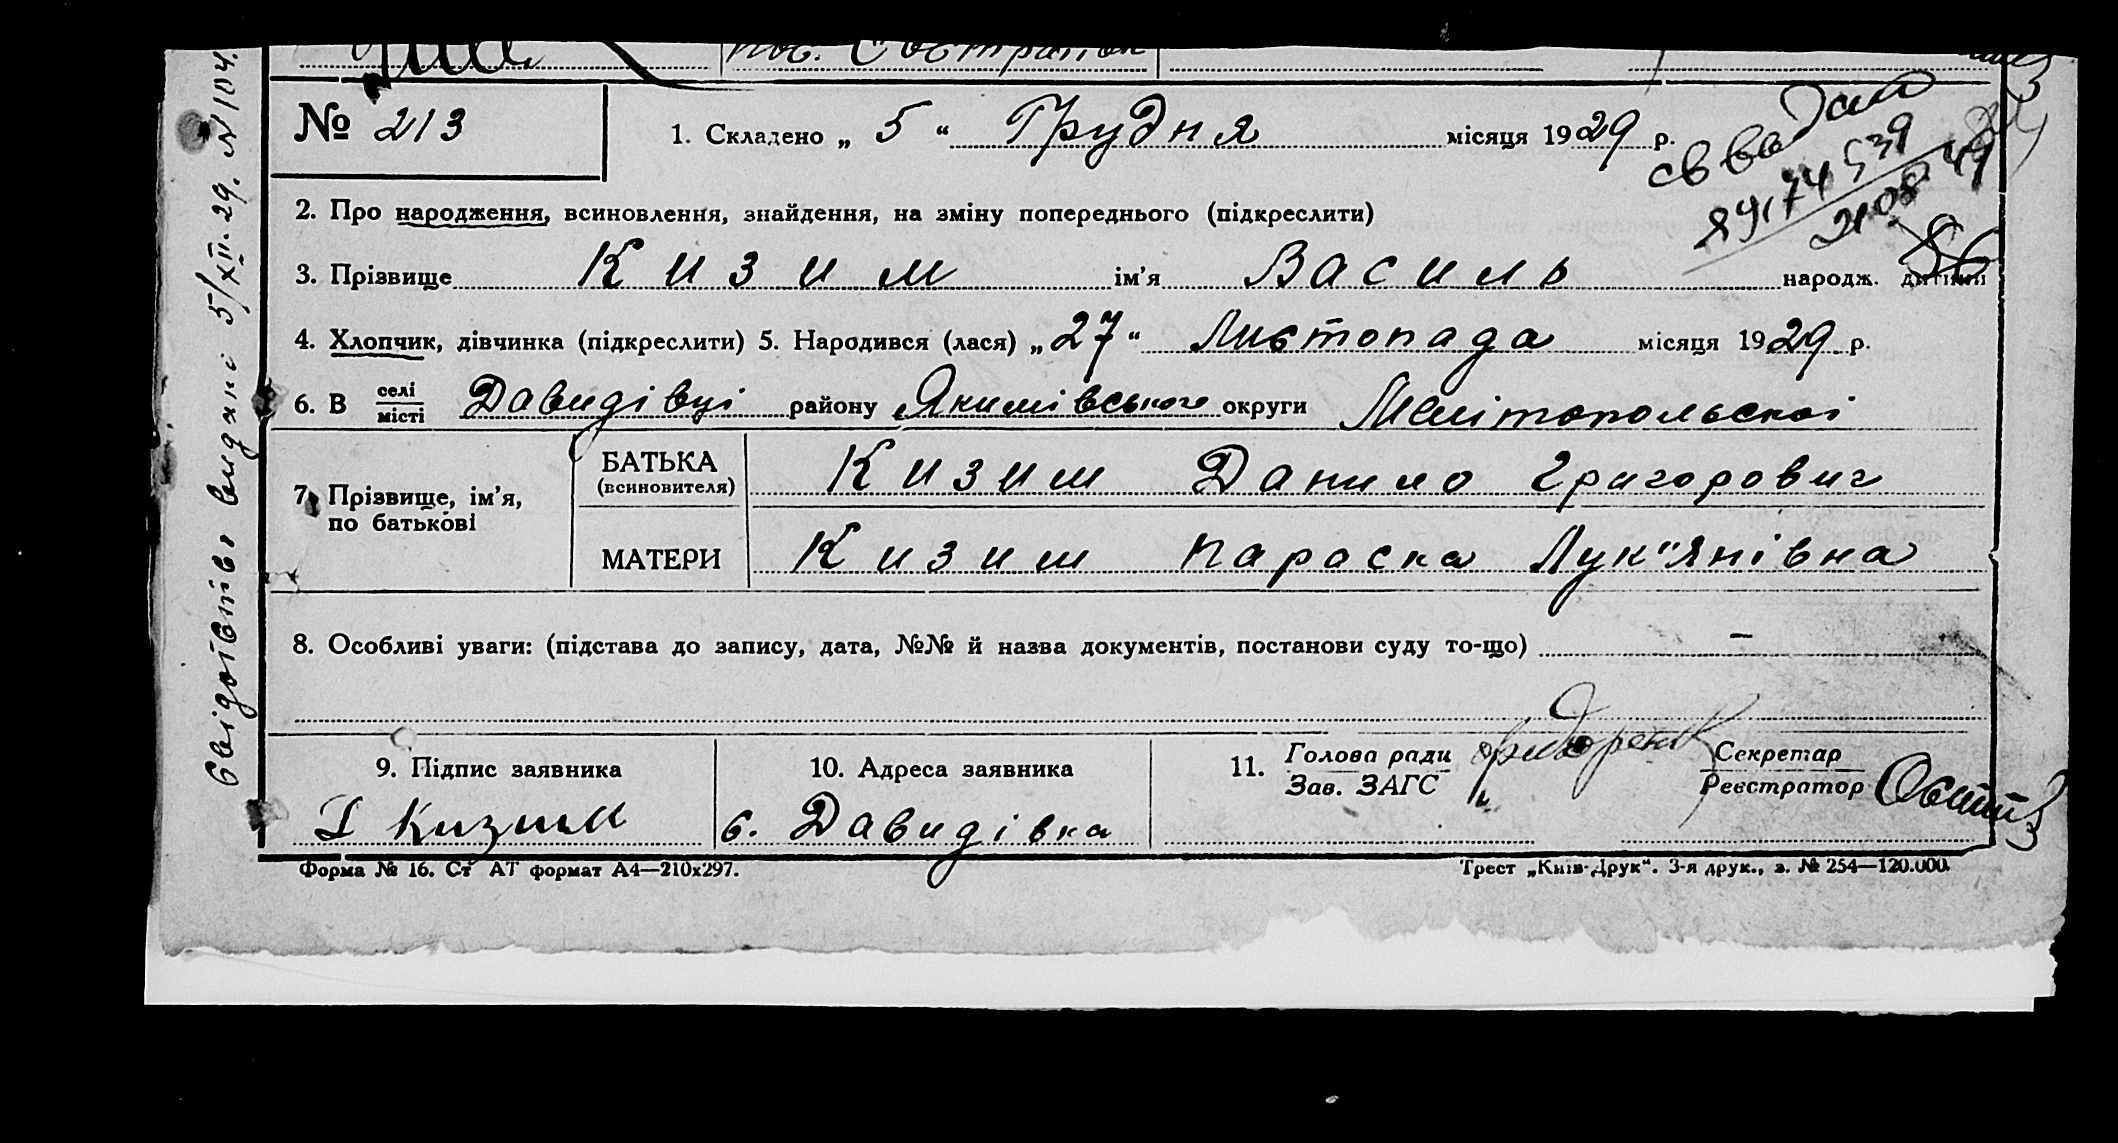 пос. Совтрапон
№ 213
1. Складено „ 5 “ Грудня місяця 1929 р.
2. Про народження, всиновлення, знайдення, на зміну попереднього (підкреслити)
3. Прізвище Кизим ім’я Василь народж. дитини
4. Хлопчик, дівчинка (підкреслити) 5. Народився (лася) „27“ Листопада місяця 1929 р.
6. В селі місті Давидівці району Якимівського округи Мелітопольскої
7. Прізвище, ім’я, по батькові
БАТЬКА (всиновителя) Кизим Данило Григорович
МАТЕРИ Кизим Параска Лук"янівна
8. Особливі уваги: (підстава до запису, дата, №№ й назва документів, постанови суду то-що) —
9. Підпис заявника
Кизим
10. Адреса заявника
с. Давидівка
11. Голова ради
Зав. ЗАГС
Секретар
Реєстратор
Форма № 16. Ст АТ формат А4—210х297.
Трест „Київ-Друк“. 3-я друк., з. № 254—120.000.
Свідоцтво видані 5/XII-29. № 104.
86